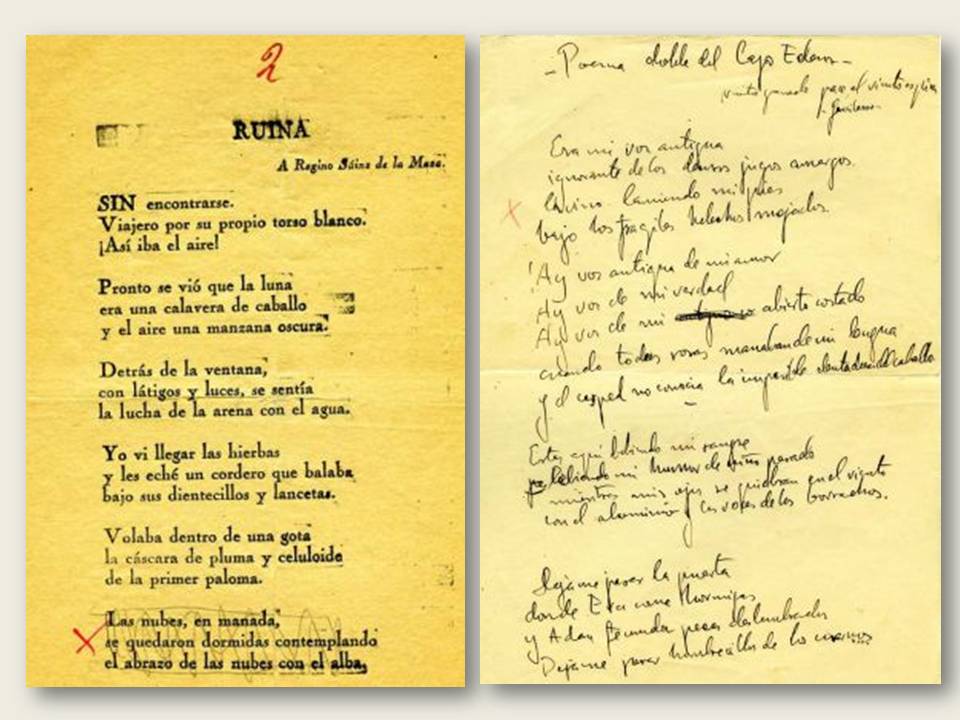 2
RUINA
A Regino Sáinz de la Maza.
SIN encontrarse.
Viajero por su propio torso blanco.
¡Así iba el aire!
Pronto se vió que la luna
era una calavera de caballo
y el aire una manzana oscura.
Detrás de la ventana,
con látigos y luces, se sentía
la lucha de la arena con el agua.
Yo vi llegar las hierbas
y les eché un cordero que balaba
bajo sus dientecillos y lancetas.
Volaba dentro de una gota
la cáscara de pluma y celuloide
de la primer paloma.
Las nubes, en manada,
se quedaron dormidas contemplando
el abrazo de las nubes con el alba,
- Poema doble del Lago Edem -
Era mi voz antigua
ignorante de los densos jugos amargos.
lamiendo mis pies
bajo los fragiles helechos mojados.
¡Ay voz antigua de mi amor
Ay voz de mi verdad
Ay voz de mi abierto costado
cuando todas las rosas manaban de mi lengua
y el cesped no conocia la impasible dentadura del caballo
Estas aqui bebiendo mi sangre
bebiendo mi humor de niño pasado
mientras mis ojos se quiebran en el viento
con el aluminio y las voces de los borrachos.
Dejame pasar la puerta
donde Eva come hormigas
y Adan fecunda peces deslumbrados
Dejame pasar hombrecillo de los cuernos